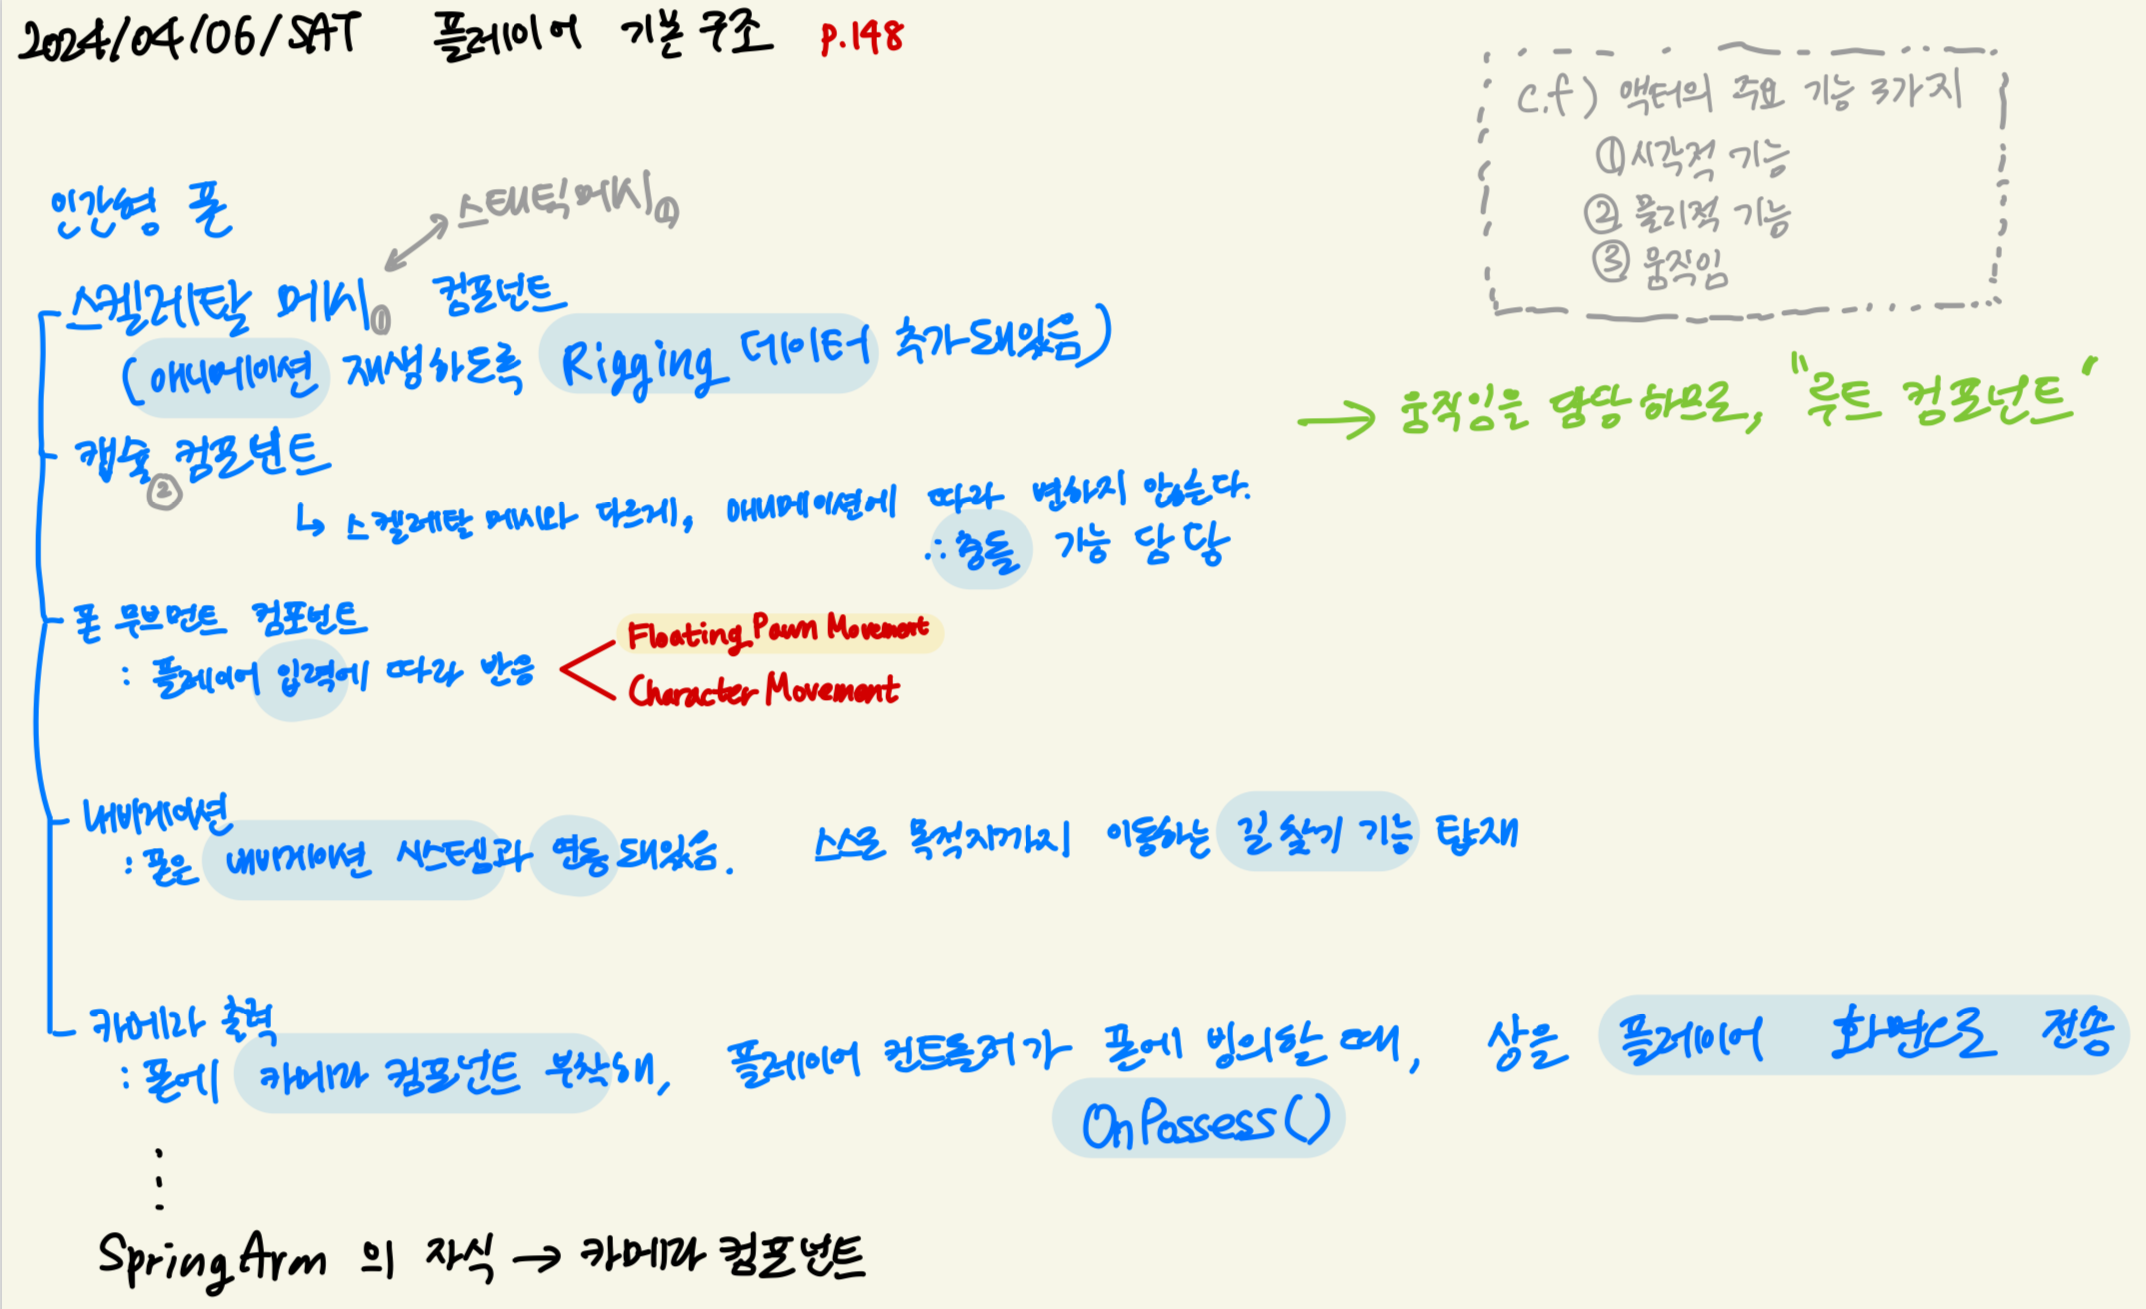 2024/04/06/SAT 플레이어 기본 구조 p.148
c.f) 액터의 주요 기능 3가지
① 시각적 기능
② 물리적 기능
③ 움직임
인간형 폰
스태틱메시①
스켈레탈 메시① 컴포넌트
(애니메이션 재생하도록 Rigging 데이터 추가돼있음)
→ 움직임을 담당하므로, "루트 컴포넌트"
캡슐 컴포넌트
②
↳ 스켈레탈 메시와 다르게, 애니메이션에 따라 변하지 않는다.
∴ 충돌 기능 담당
폰 무브먼트 컴포넌트
: 플레이어 입력에 따라 반응
Floating Pawn Movement
Character Movement
내비게이션
: 폰은 내비게이션 시스템과 연동돼있음. 스스로 목적지까지 이동하는 길 찾기 기능 탑재
카메라 출력
: 폰에 카메라 컴포넌트 부착해, 플레이어 컨트롤러가 폰에 빙의할 때, 상을 플레이어 화면으로 전송
OnPossess()
SpringArm 의 자식 → 카메라 컴포넌트